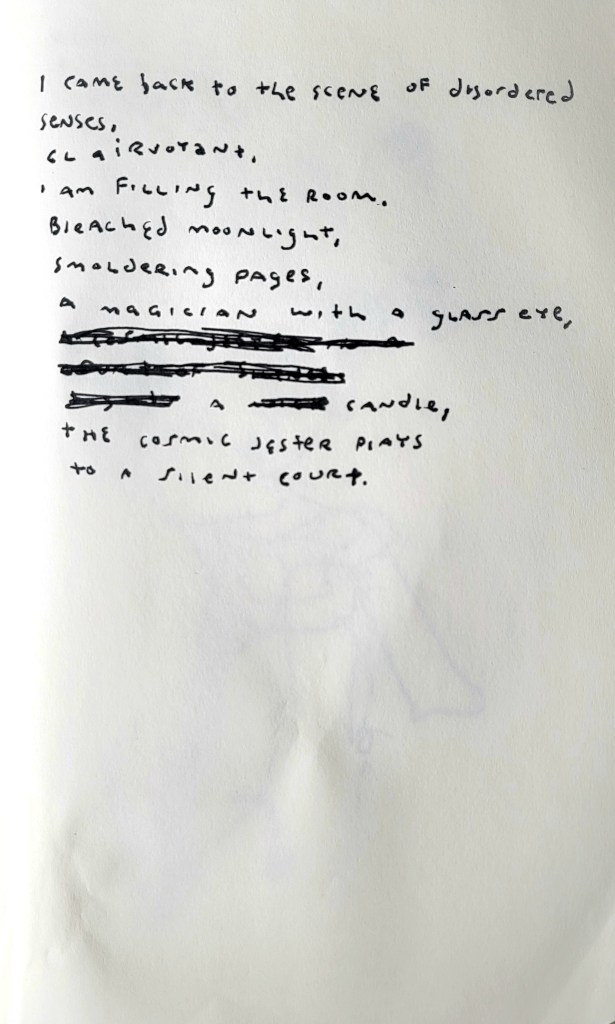 I came back to the scene of disordered
senses,
clairvoyant,
I am filling the room.
Bleached moonlight,
smoldering pages,
a magician with a glass eye,
a candle,
the cosmic jester plays
to a silent court.